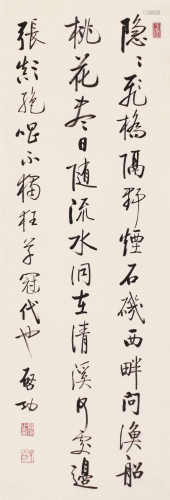 隐〻飛橋隔野煙石磯西畔問漁船
桃花盡日随流水洞在清溪何處邊
張顛絶唱不獨狂草冠代也 啓功